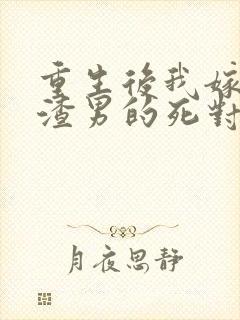 重生後我嫁
渣男的死對
月夜思靜